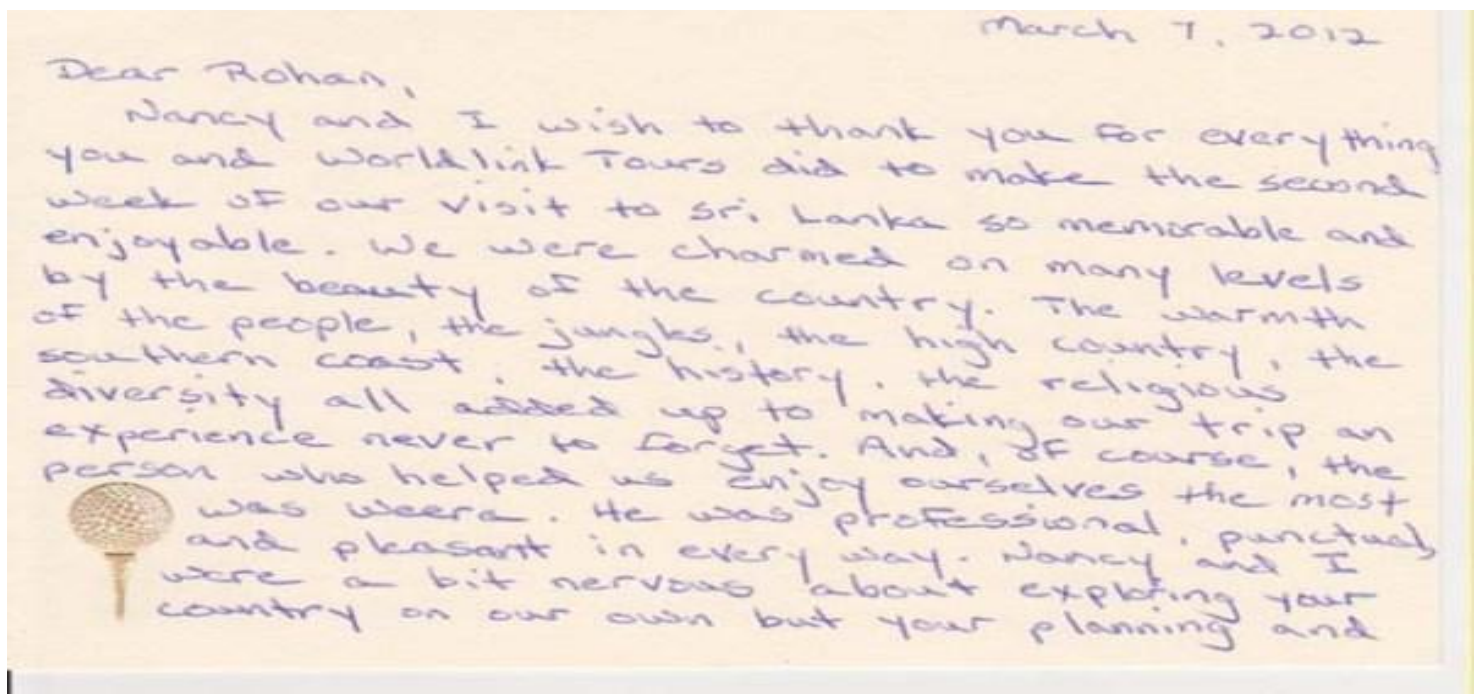 March 7, 2012
Dear Rohan,
Nancy and I wish to thank you for everything
you and Worldlink Tours did to make the second
week of our visit to Sri Lanka so memorable and
enjoyable. We were charmed on many levels
by the beauty of the country. The warmth
of the people, the jungles, the high country, the
southern coast, the history, the religious
diversity all added up to making our trip an
experience never to forget. And, of course, the
person who helped us enjoy ourselves the most
was Weera. He was professional, punctual,
and pleasant in every way. Nancy and I
were a bit nervous about exploring your
country on our own but your planning and